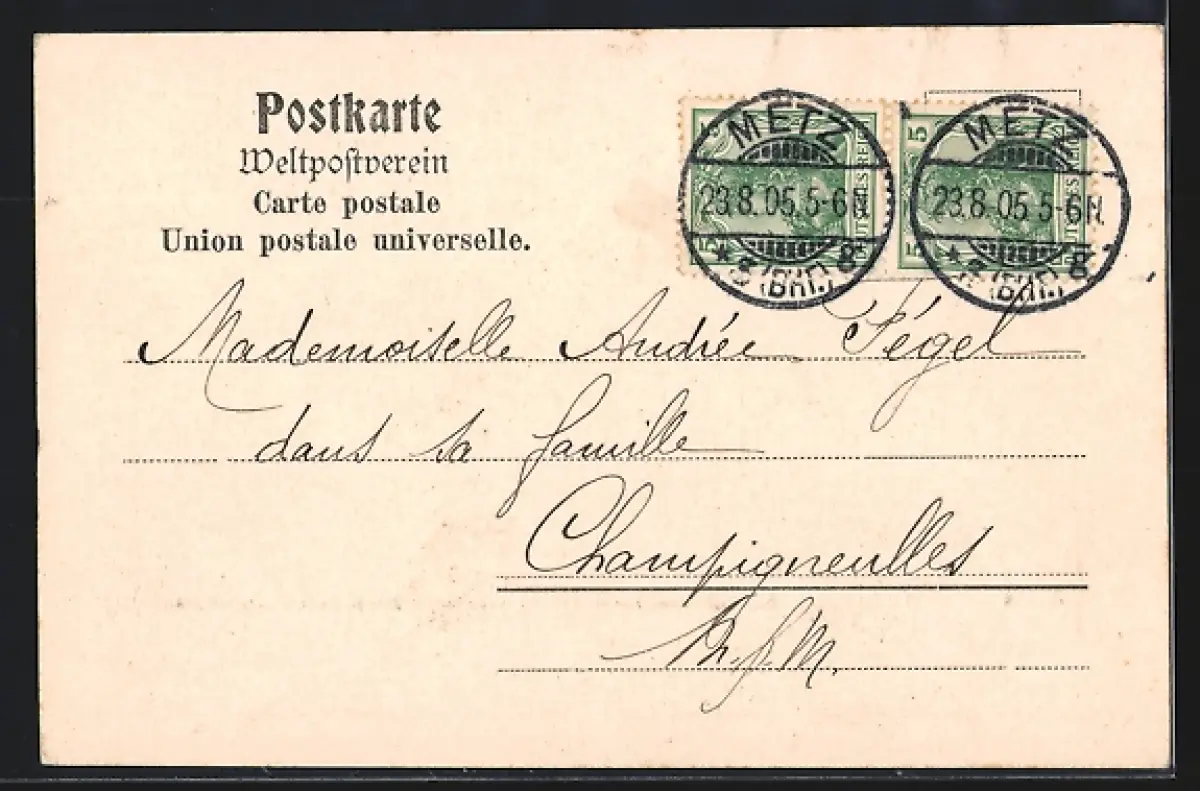 Postkarte
Weltpostverein
Carte postale
Union postale universelle.
METZ
23.8.05.5-6N.
* 3 (BHF.) 8
METZ
23.8.05.5-6N.
* 3 (BHF.) 8
5
5
Mademoiselle Andrée Fégel
dans sa famille
Champigneulles
M.